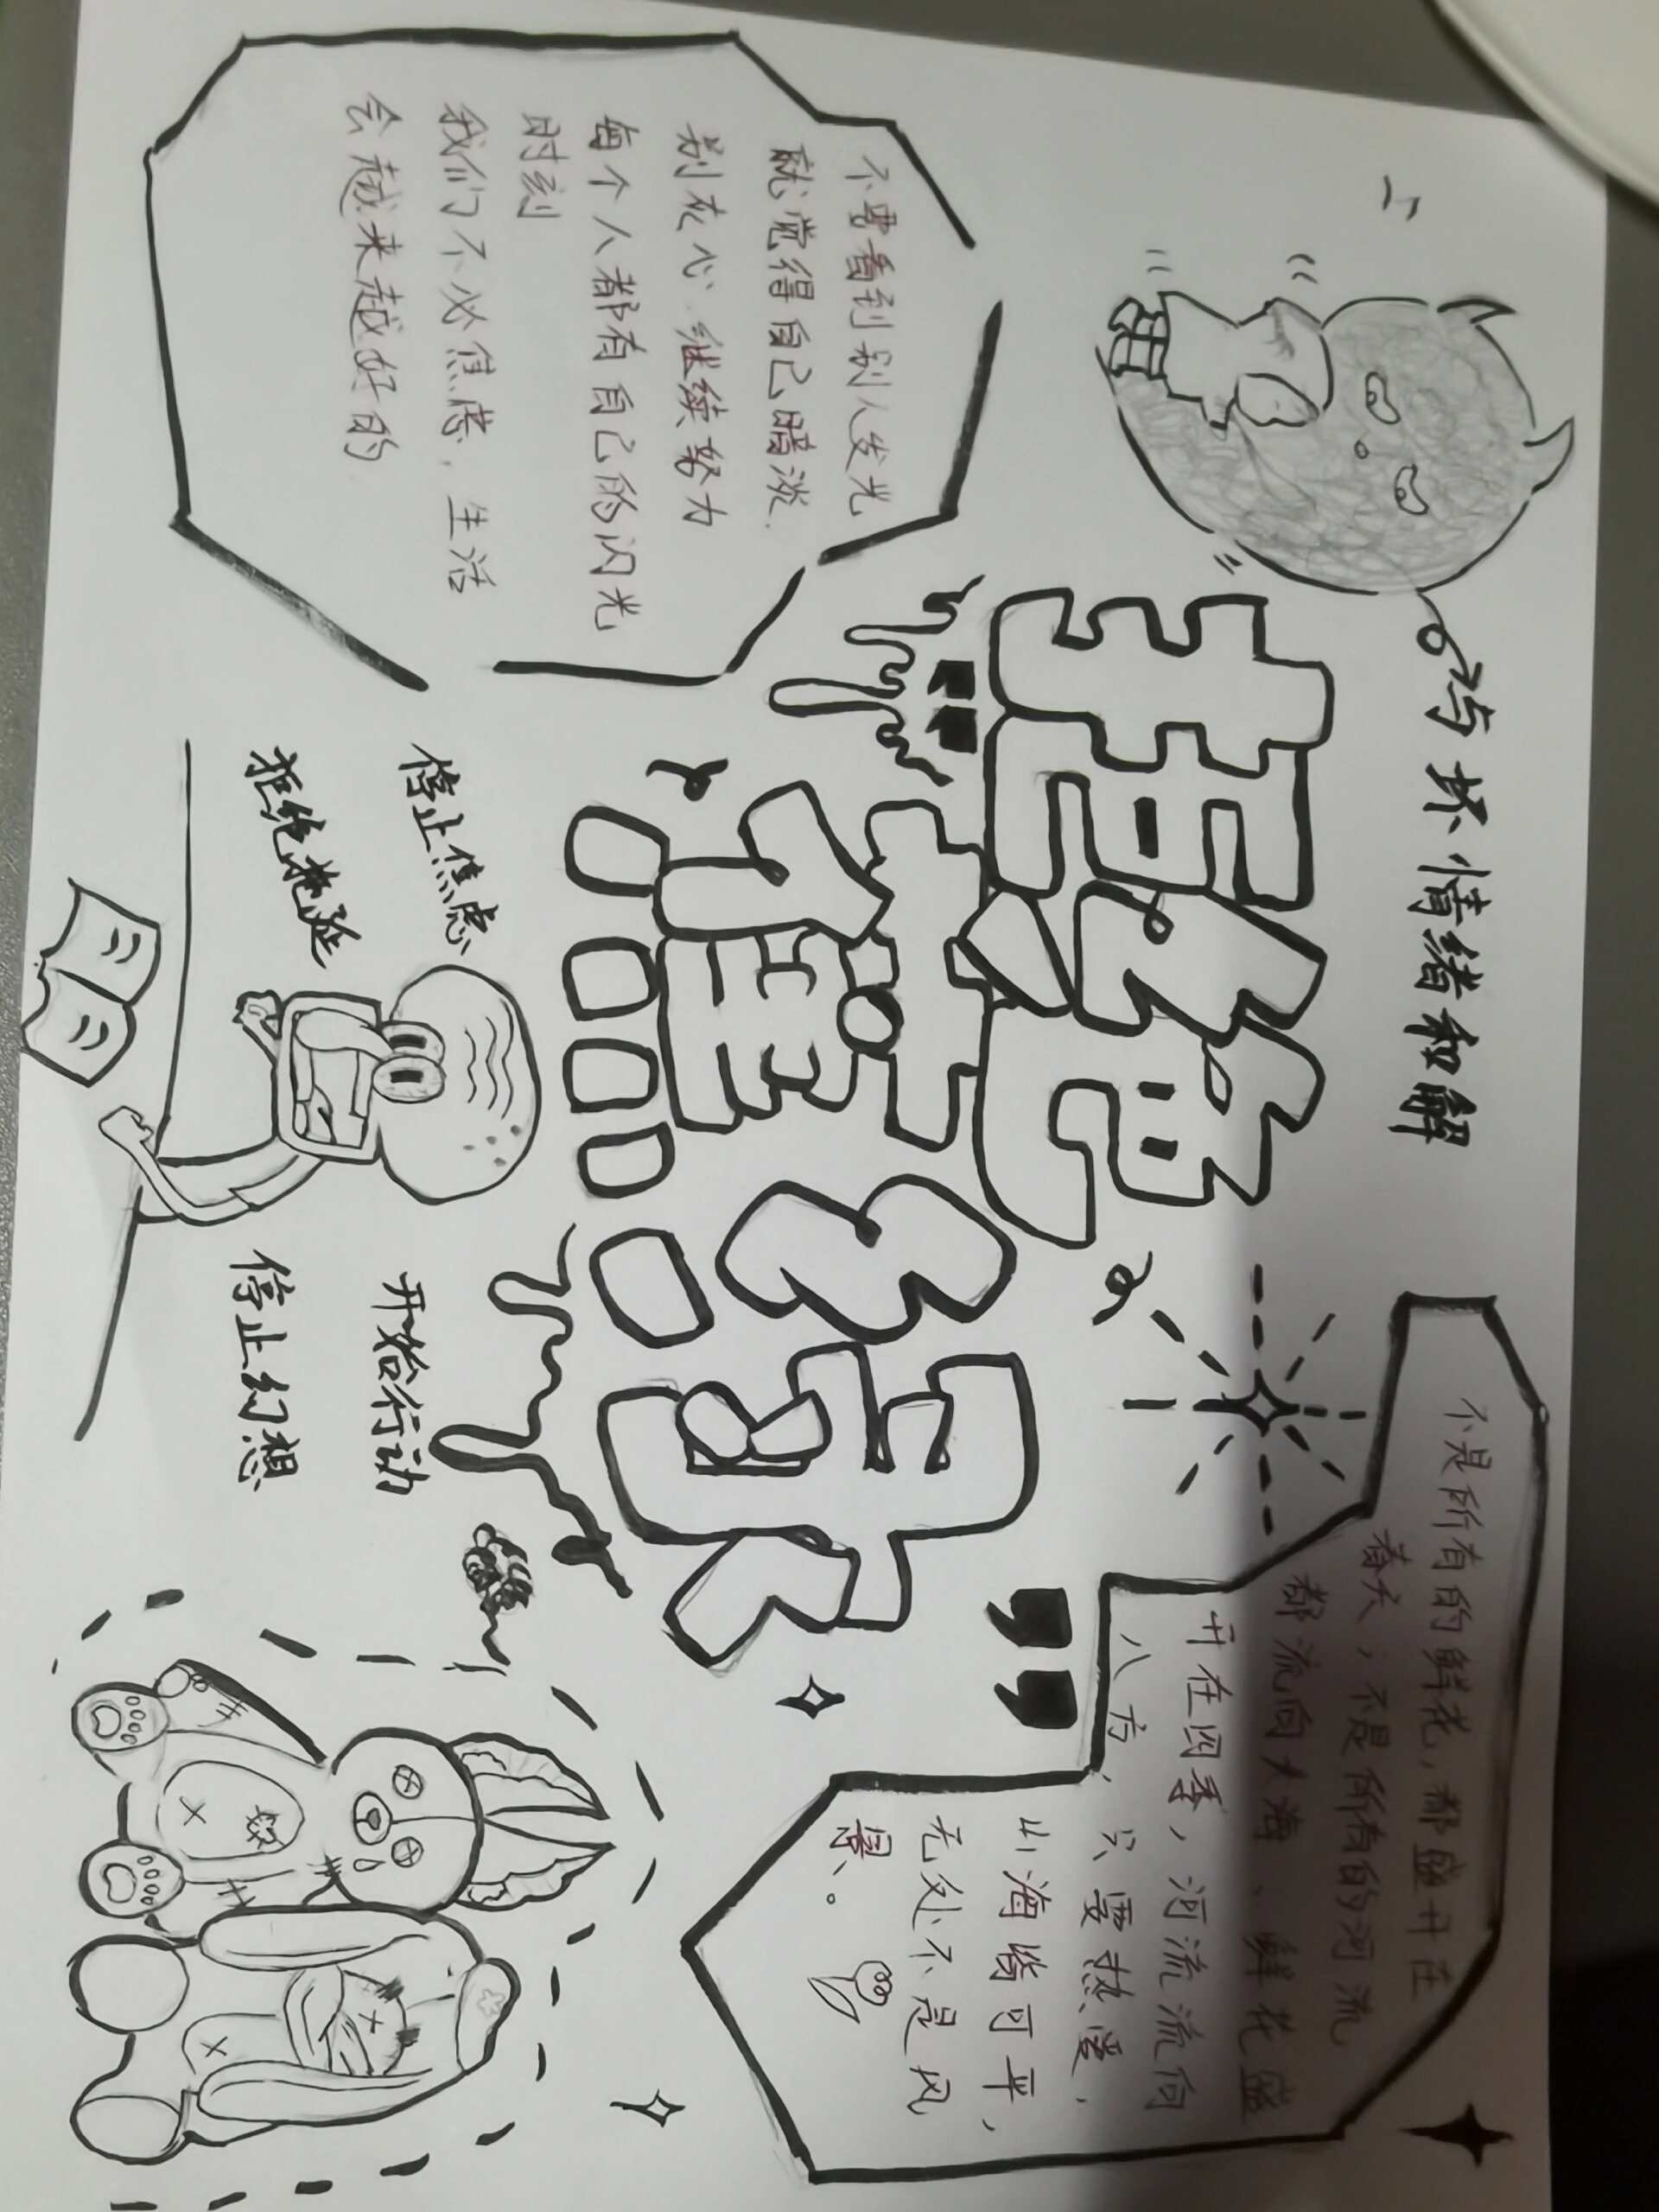 与坏情绪和解
“拒绝
蕉绿”
不是所有的鲜花，都盛开在
春天；不是所有的河流
都流向大海、鲜花盛
开在四季，河流流向
八方，只要热爱，
山海皆可平，
无处不是风
景。
不要看到别人发光
就觉得自己暗淡.
别灰心.继续努力
每个人都有自己的闪光
时刻
我们不必焦虑，生活
会越来越好的
停止焦虑
拒绝拖延
开始行动
停止幻想